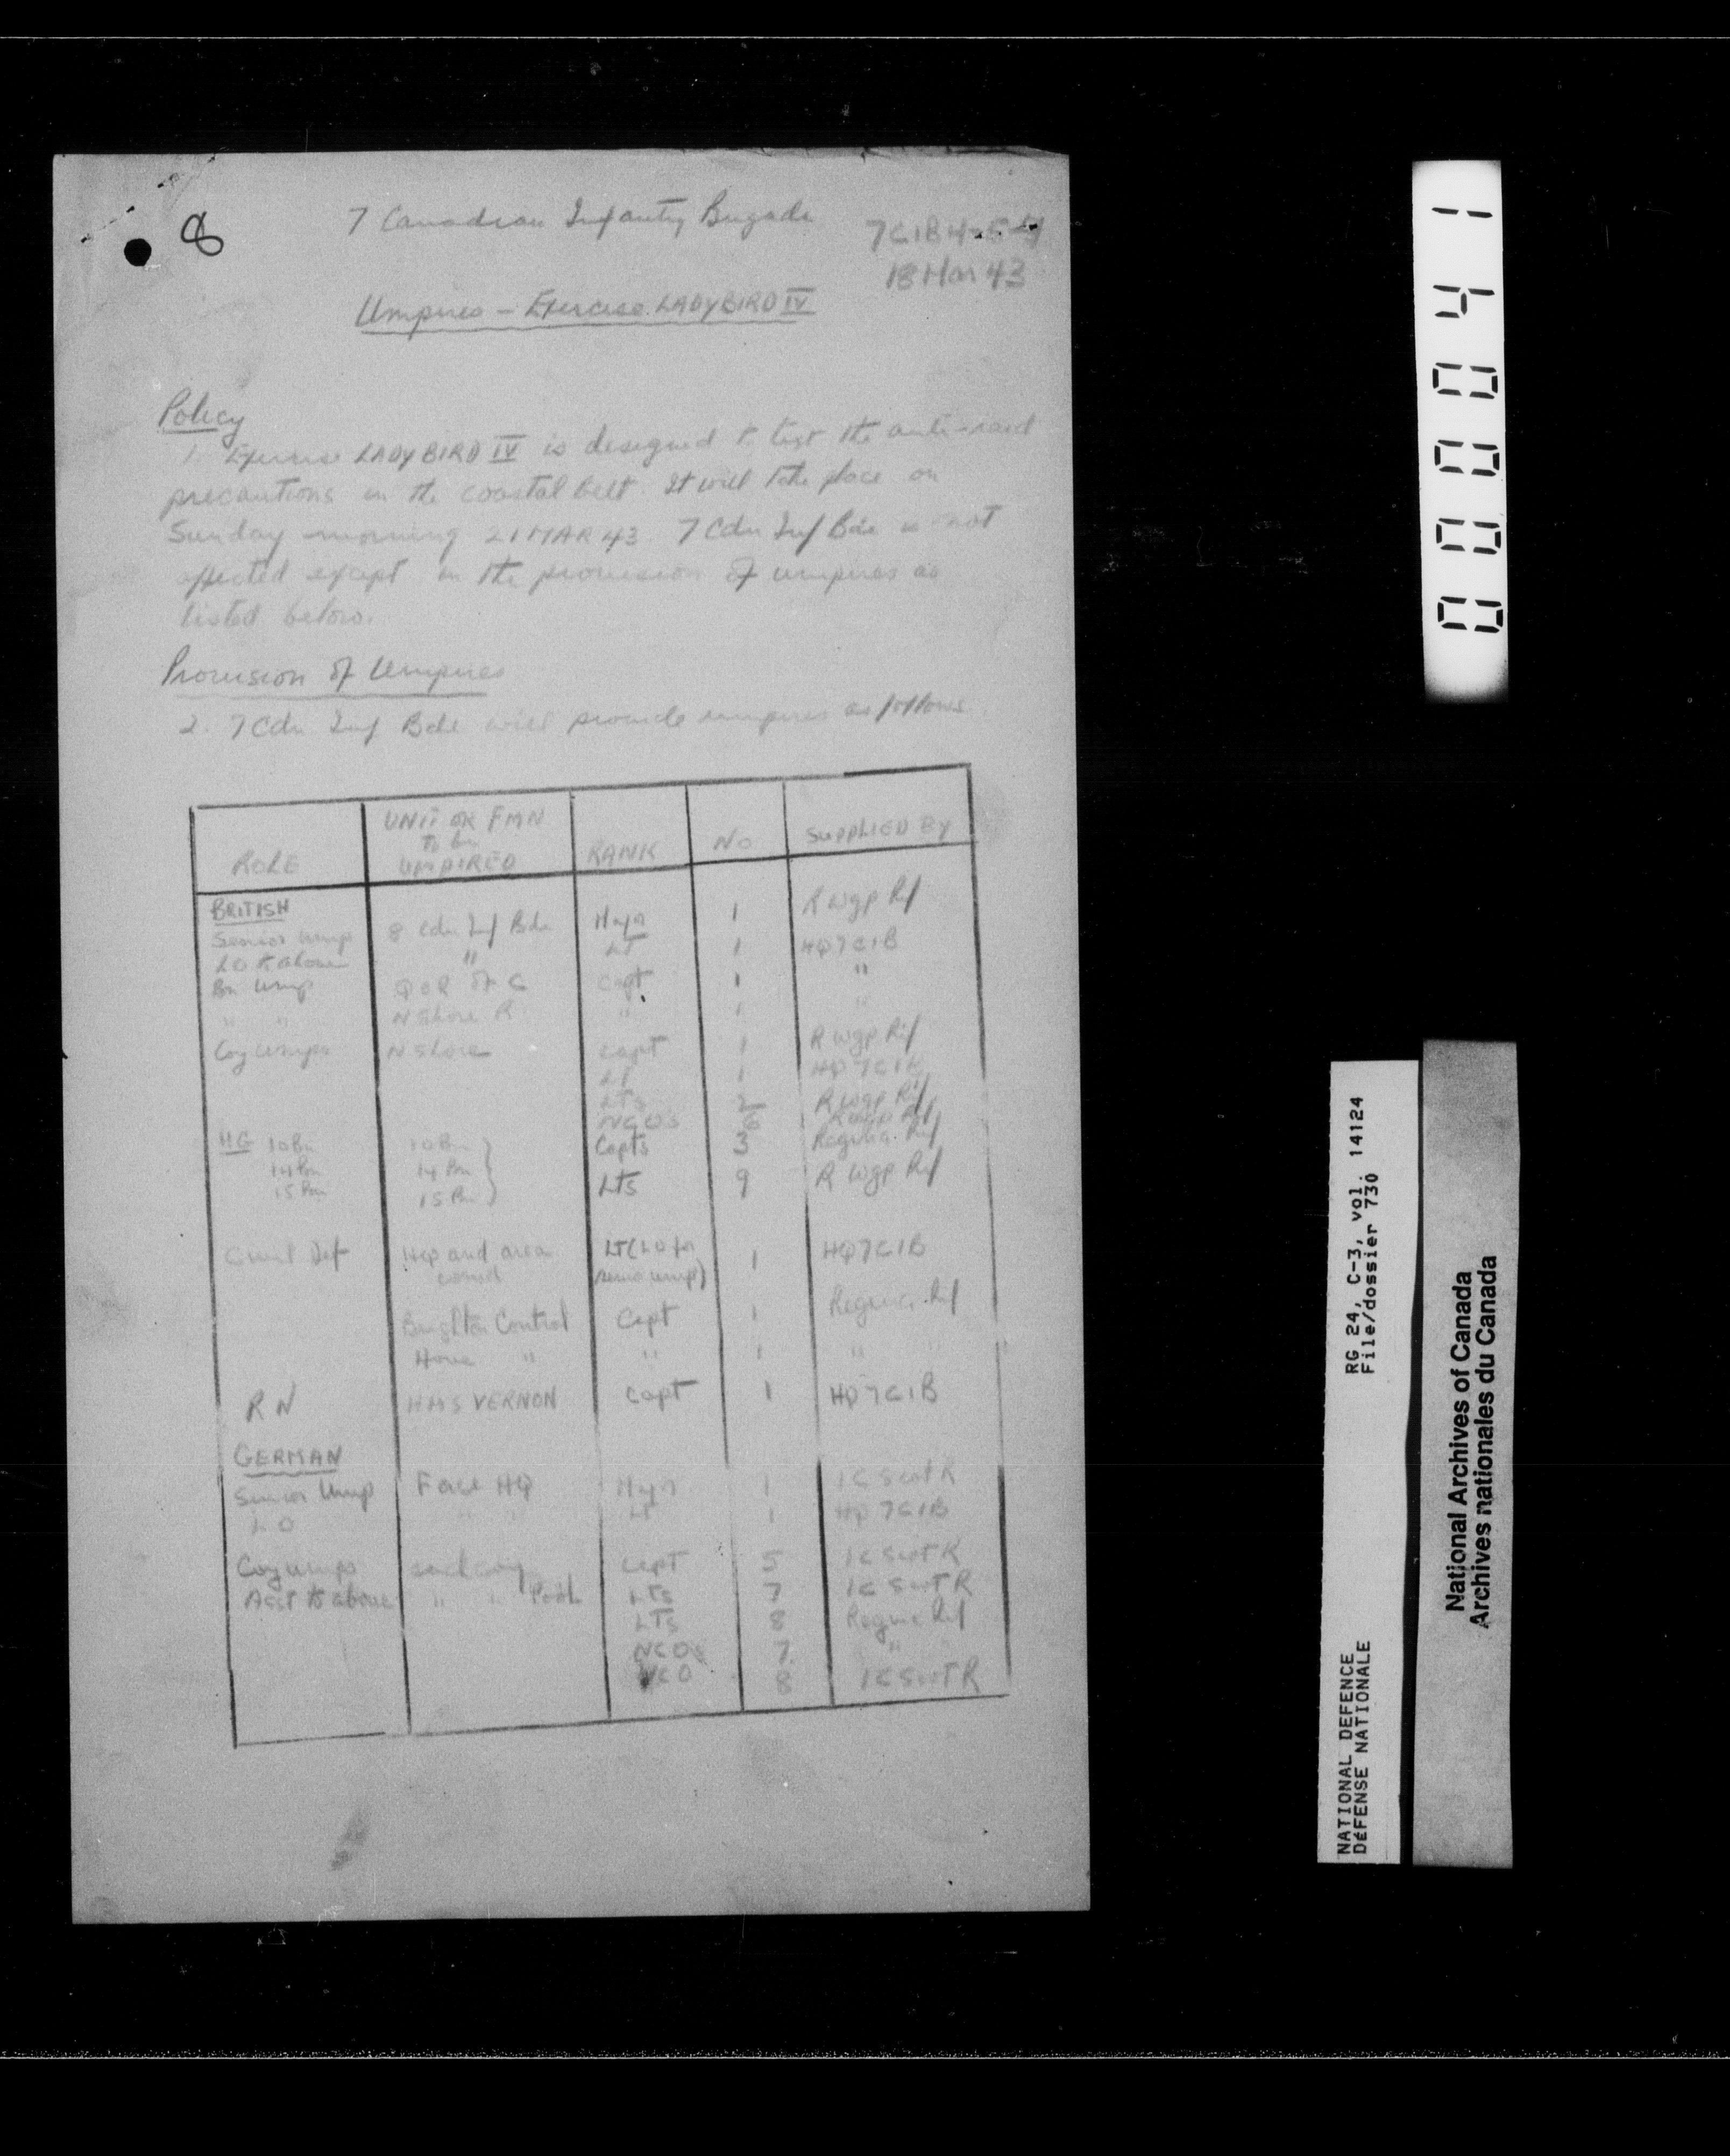 8
7 Canadian Infantry Brigade
7CIB 4-5-4
18 Mar 43
Umpires - Exercise LADYBIRD IV
Policy
1. Exercise LADYBIRD IV is designed to test the anti-raid
precautions in the coastal belt. It will take place on
Sunday morning 21 MAR 43. 7 Cdn Inf Bde is not
affected except in the provision of umpires as
listed below.
Provision of Umpires
2. 7 Cdn Inf Bde will provide umpires as follows
ROLE UNIT OR FMN to be UMPIRED RANK No SUPPLIED BY
BRITISH
Senior Ump 8 Cdn Inf Bde Major 1 R Wpg Rif
LO to above " LT 1 HQ 7 CIB
Bn Ump QOR of C Capt 1 "
" " N Shore R " 1 "
Coy Umps N Shore Capt 1 R Wpg Rif
LT 1 HQ 7 CIB
LTs 2 R Wpg Rif
NCOs 6 R Wpg Rif
HG 10 Bn 10 Bn Capts 3 Regina Rif
14 Bn 14 Bn LTs 9 R Wpg Rif
15 Bn 15 Bn
Civil Def HQ and area LT (LO for 1 HQ 7 CIB
control senior ump)
Brighton Control Capt 1 Regina Rif
Hove " " 1 " "
RN HMS VERNON Capt 1 HQ 7 CIB
GERMAN
Senior Ump Force HQ Major 1 1 C Scot R
LO " " LT 1 HQ 7 CIB
Coy umps each coy Capt 5 1 C Scot R
Asst to above " " LTs 7 1 C Scot R
LTs 8 Regina Rif
NCOs 7 "
NCO 8 1 C Scot R
0000 41
RG 24, C-3, vol. 14124
File/dossier 730
NATIONAL DEFENCE
DÉFENSE NATIONALE
National Archives of Canada
Archives nationales du Canada